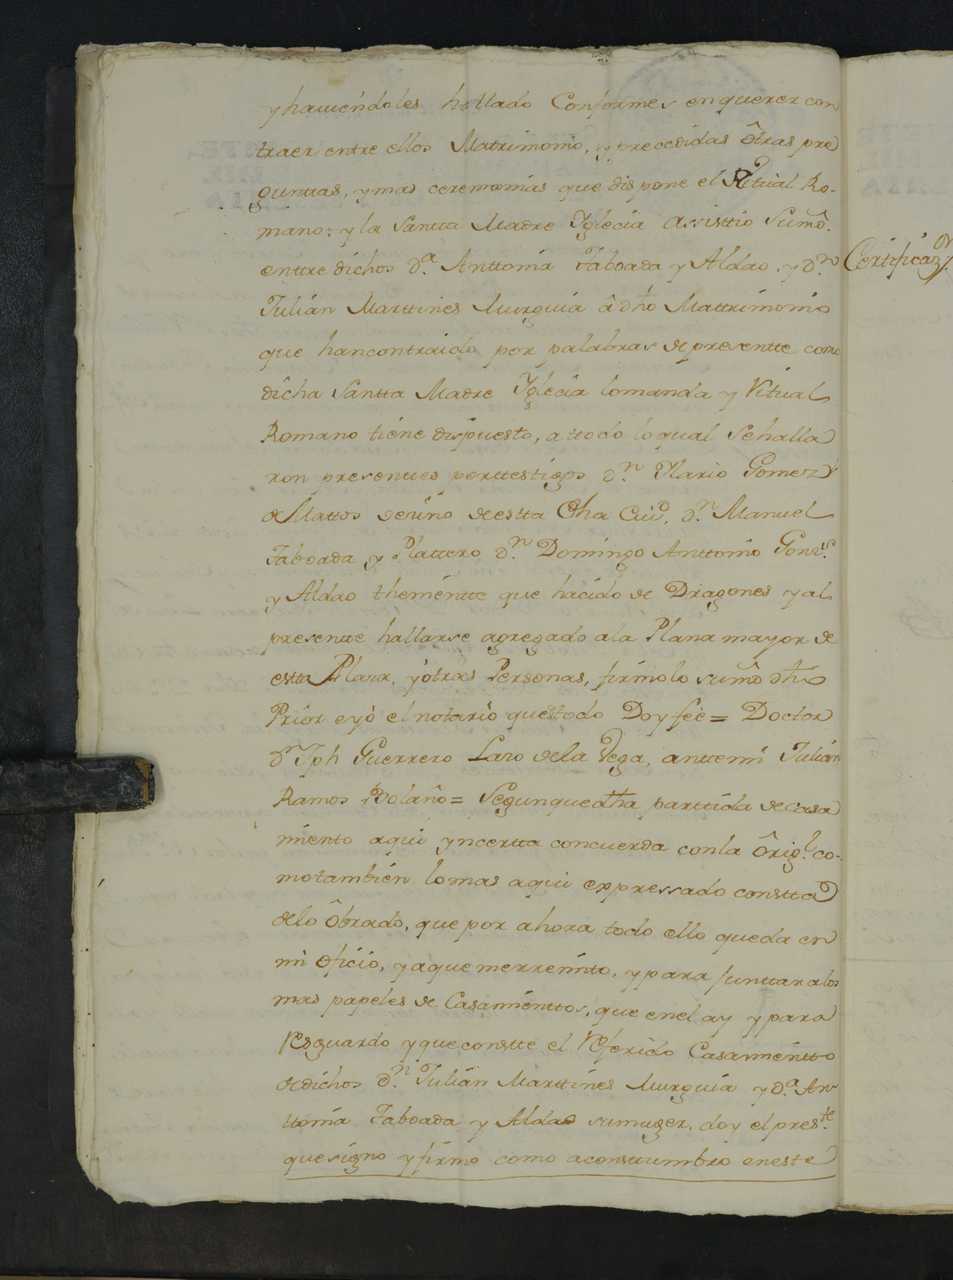 y haviendoles hallado Conformes en querer con
traer entre ellos Matrimonio, y precedidas ôtras pre
guntas, y mas ceremonias que dispone el Ritual Ro-
mano: y la Santta Madre Yglecia Assisttio Sumd.
enttre dichos Da. Anttonia Taboada y Aldao, y Dn.
Julián Marttines Murguia â dho Mattrimonio
que han contraido por palabras de presentte como
dicha Santta Madre Yglecia lo manda y Ritual
Romano tiene dispuesto, a ttodo lo qual se halla
ron presenttes por ttestigos Dn. Mario Gomez
de Mattos Vecino de estta dha Ciud. Dn. Manuel
Taboada y Platero Dn. Domingo Anttonio Gons.
y Aldao theniente que ha cido de Dragones y al
presentte hallarse agregado a la Plana mayor de
estta Plaza, y ôtras Personas, firmolo sumd. dho
Prior e yò el notario que de todo Doy feè = Doctor
Dn. Jph Guerrero Lazo de la Vega, antte mi Julián
Ramos Bolaño = Segun que dha parttida de casa
miento aqui yncertta concuerda con la Ôrigl. co-
mo tambien lo mas aqui expressado constta
de lo Ôbrado, que por ahora todo ello queda en
mi oficio, y a que me rremito, y para junttar a los
mas papeles de Casamienttos, que en el ay y para
Resguardo y que constte el Referido Casamientto
de dichos Dn. Julián Marttines Murguia y Da. An
ttonia Taboada y Aldao su muger, doy el preste.
que signo y firmo como acosttumbro en este
Certificazn.